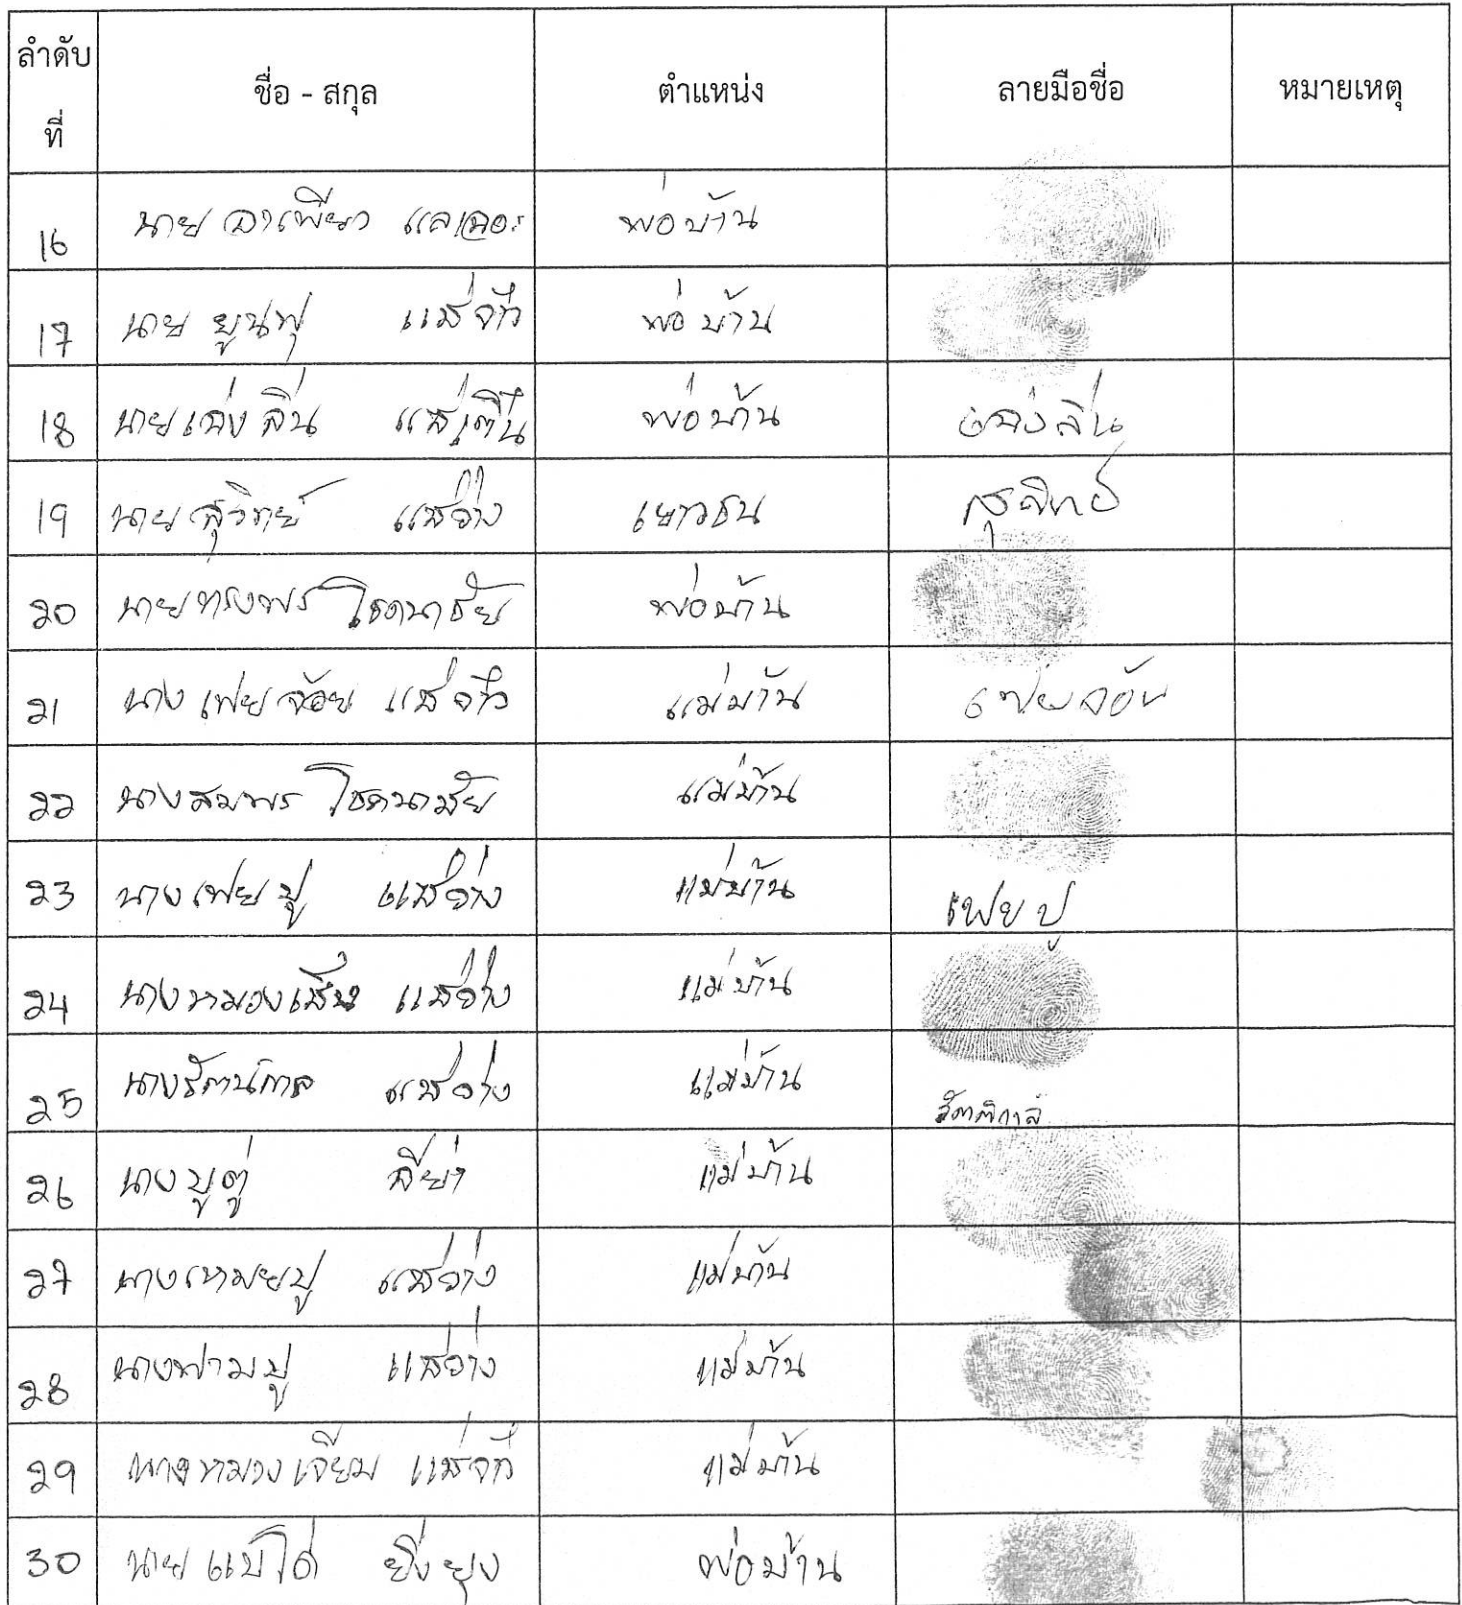 ลำดับที่ ชื่อ - สกุล ตำแหน่ง ลายมือชื่อ หมายเหตุ
16 นาย อาเพียว แลเฉอะ พ่อบ้าน
17 นาย ยูนฟุ แซ่จ๋าว พ่อบ้าน
18 นาย เฉ่งลิ่น แซ่เติ๋น พ่อบ้าน เฉ่งลิ่น
19 นาย สุวิทย์ แซ่ว่าง เยาวชน สุวิทย์
20 นายทรงพร โชคนาชัย พ่อบ้าน
21 นาง เฟยจ้อย แซ่จ๋าว แม่บ้าน เฟยจ้อย
22 นางสมพร โชคนาชัย แม่บ้าน
23 นาง เฟย ปู แซ่ว่าง แม่บ้าน เฟย ปู
24 นางหมวงเส็ง แซ่ว่าง แม่บ้าน
25 นางรัตน์กาล แซ่ว่าง แม่บ้าน
26 นาง ปูตู่ ลีย่า แม่บ้าน
27 นางเหมยปู แซ่ว่าง แม่บ้าน
28 นางฟามปู แซ่ว่าง แม่บ้าน
29 นางหมวง เจียม แซ่จ๋าว แม่บ้าน
30 นาย ยิ่งยง พ่อบ้าน